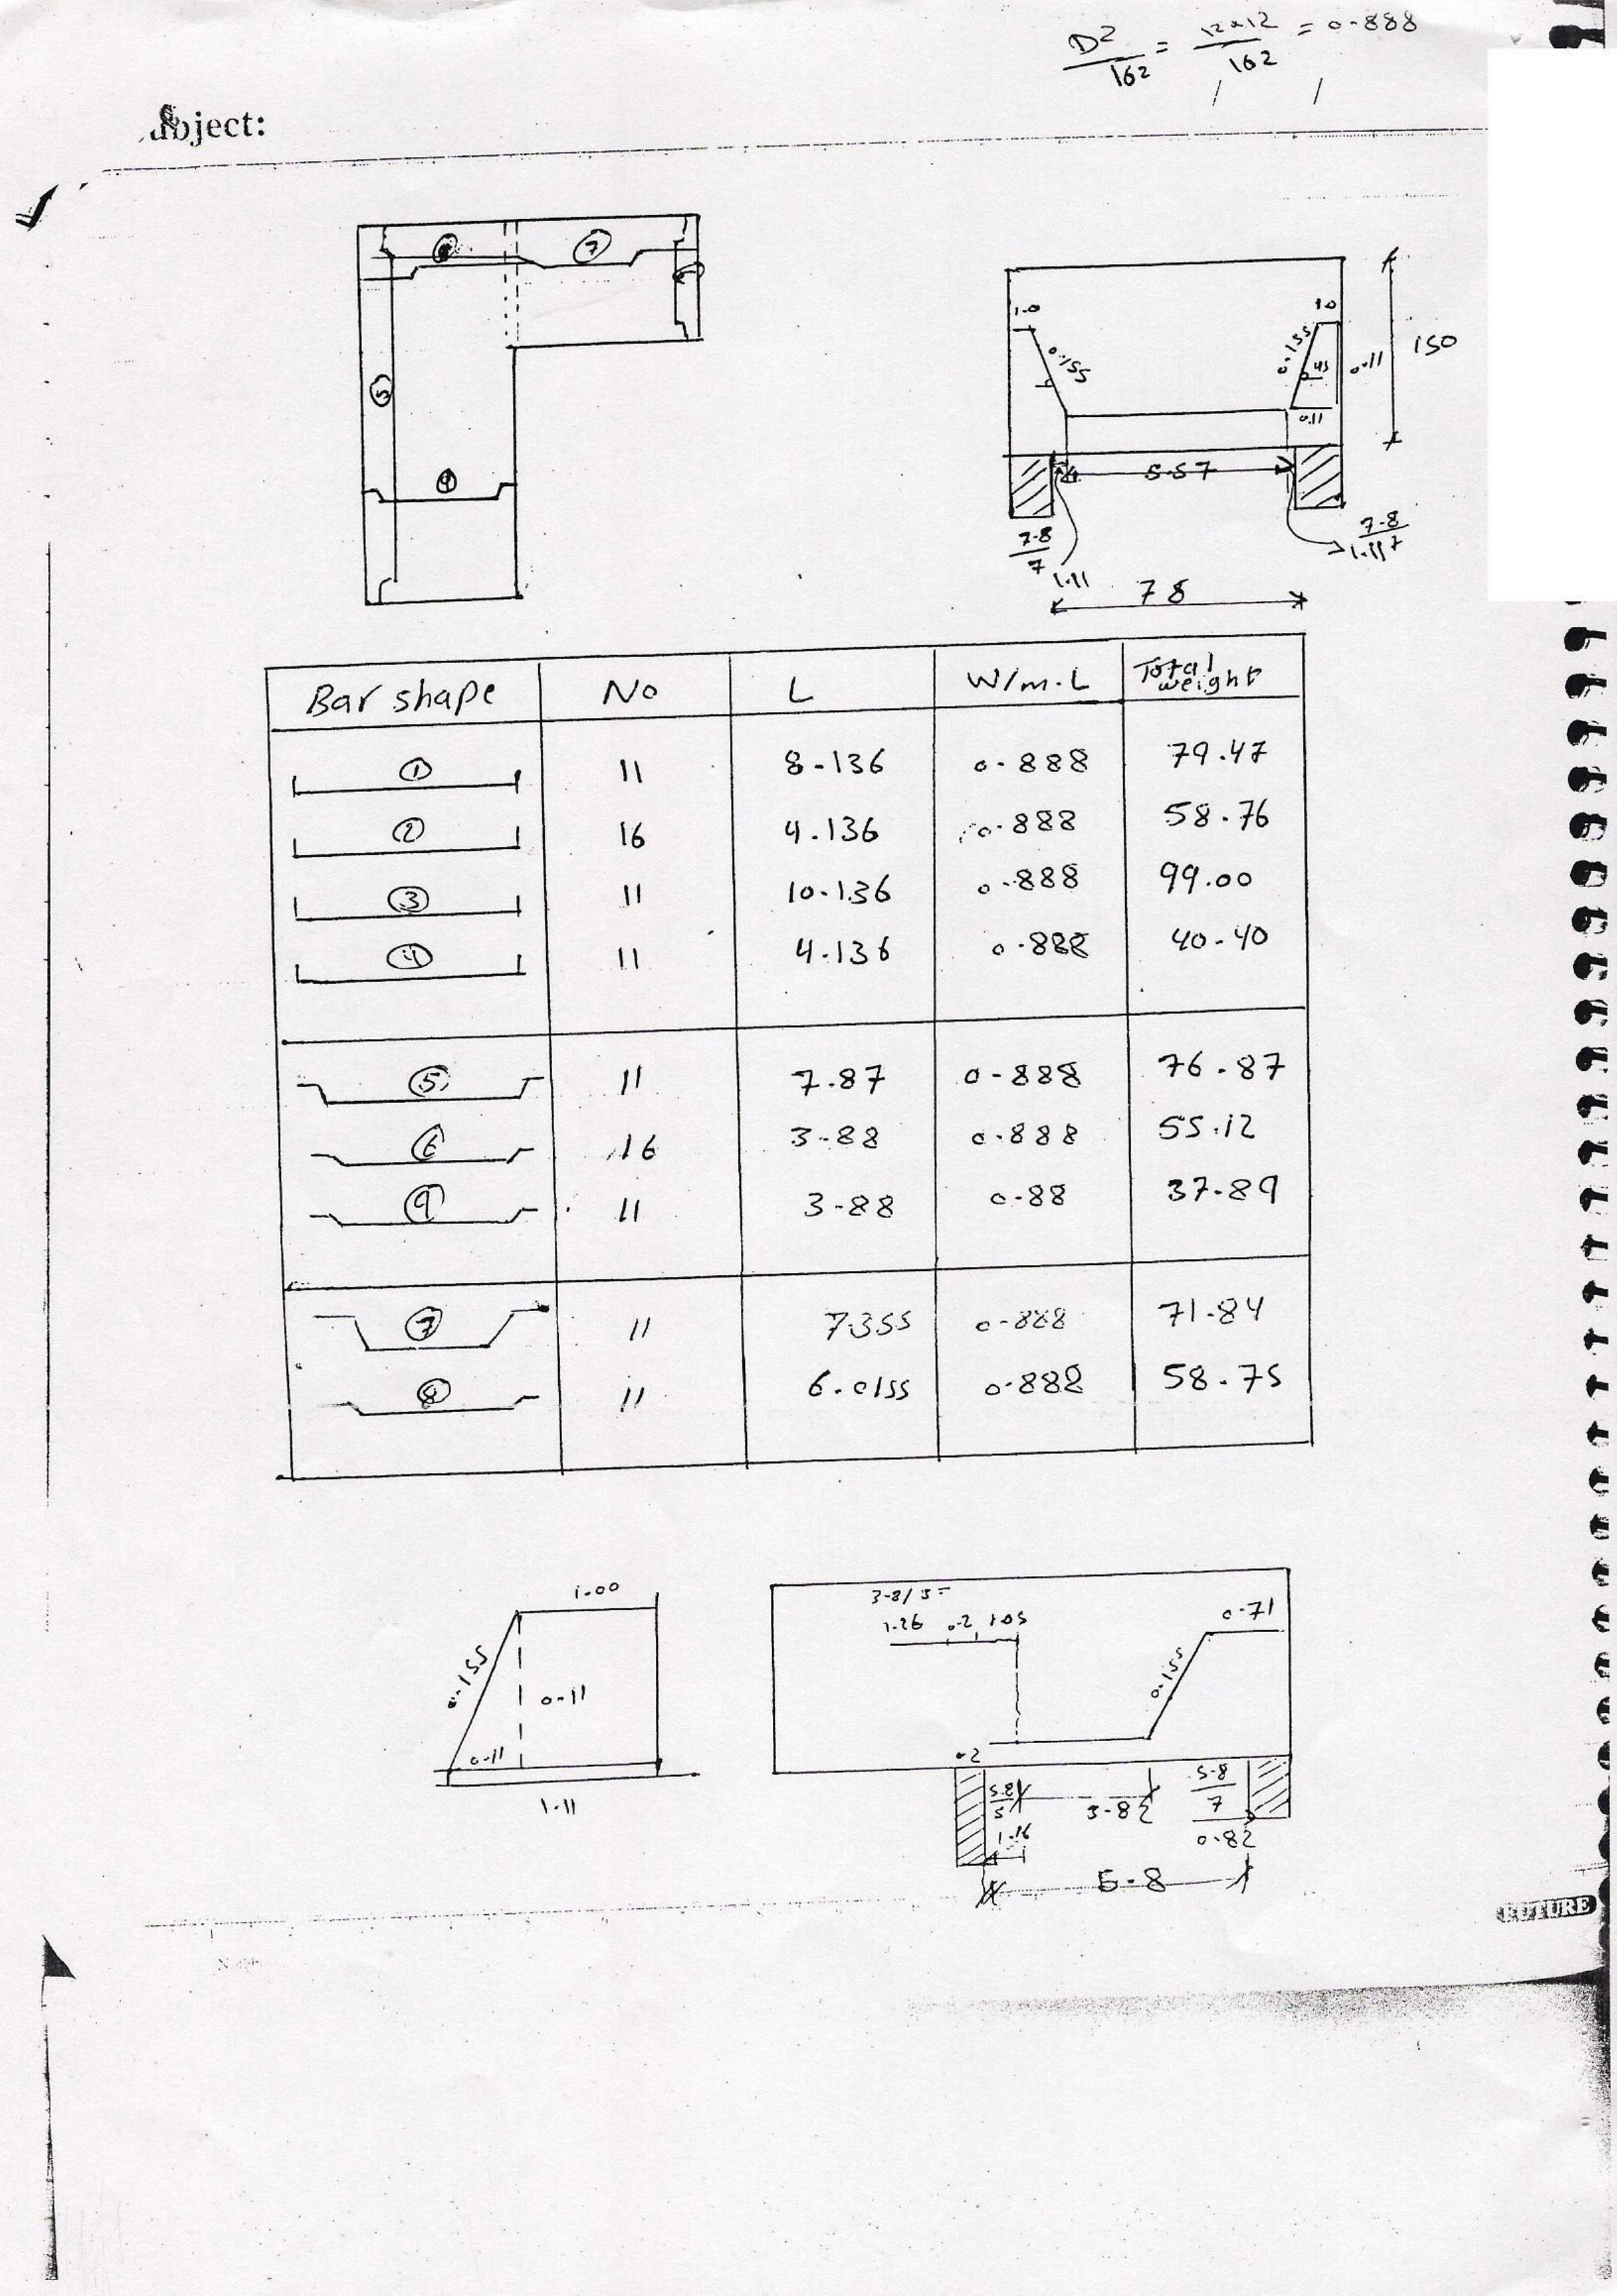 D²/162 = 12x12/162 = 0.888
Subject:
8 7
5
9
1.0 1.0
0.155 0.155 45 0.11 150
0.11
5.57
7.8/7 1.11 7.8/7 1.11
7 8
Bar shape No L W/m.L Total weight
1 11 8.136 0.888 79.47
2 16 4.136 0.888 58.76
3 11 10.136 0.888 99.00
4 11 4.136 0.888 40.40
5 11 7.87 0.888 76.87
6 16 3.88 0.888 55.12
9 11 3.88 0.88 37.89
7 11 7.355 0.888 71.84
8 11 6.0155 0.888 58.75
1.00
0.155 0.11
0.11
1.11
3.8/3=
1.26 .2 1.05 0.71
0.155
.2
5.8/5 3.82 5.8/7
1.16 0.82
5.8
FUTURE